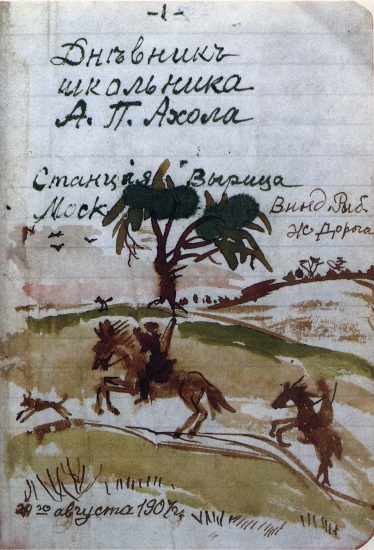 -1-
Днѣвникъ
школьника
А. П. Ахола
Станція Вырица
Моск Винд. Рыб.
ж дорога
29го августа 1907г.